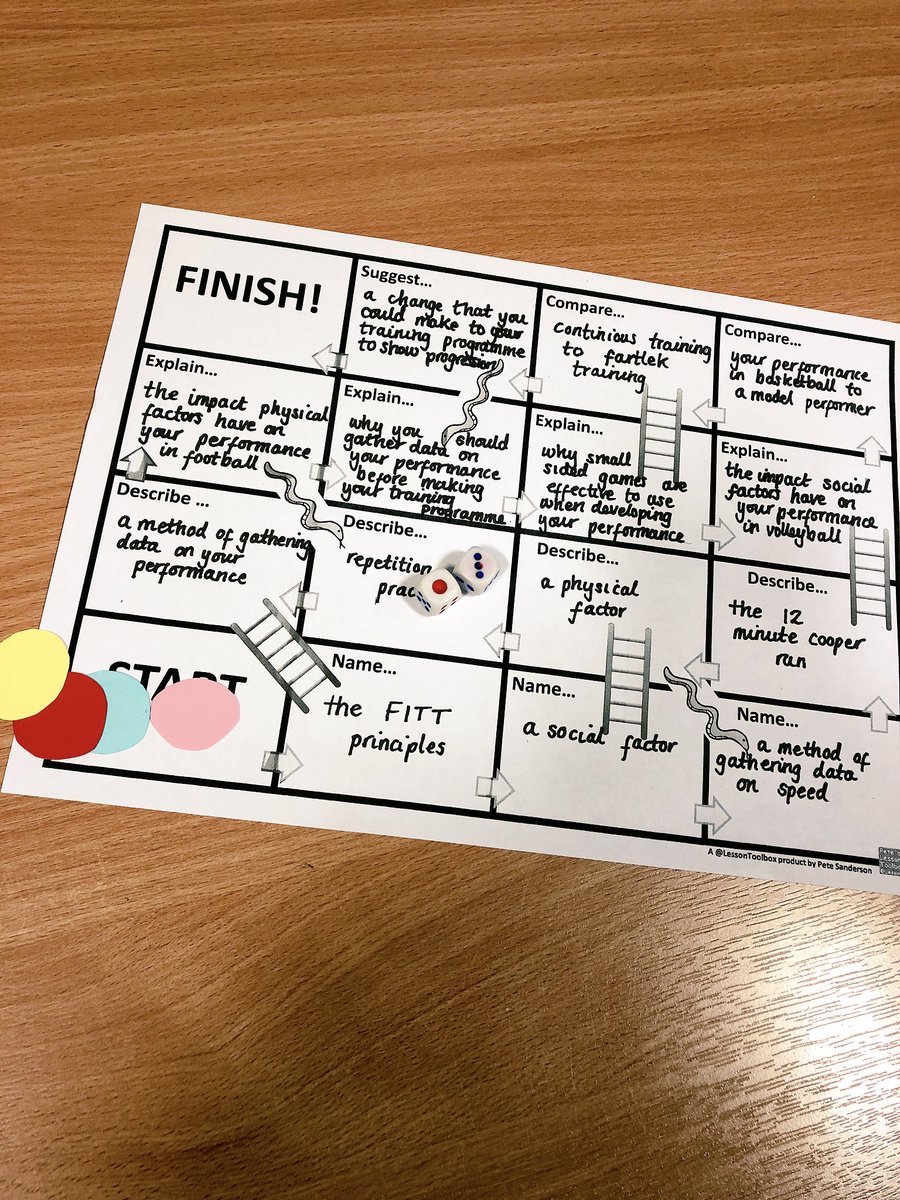 FINISH!
Suggest...
a change that you
could make to your
training programme
to show progression
Compare...
continious training
to fartlek
training
Compare...
your performance
in basketball to
a model performer
Explain...
the impact physical
factors have on
your performance
in football
Explain...
why you should
gather data on
your performance
before making
your training
programme
Explain...
why small
sided games are
effective to use
when developing
your performance
Explain...
the impact social
factors have on
your performance
in volleyball
Describe ...
a method of gathering
data on your
performance
Describe...
repetition
Describe...
a physical
factor
Describe...
the 12
minute cooper
run
START
Name...
the FITT
principles
Name...
a social factor
Name...
a method of
gathering data
on speed
A @LessonToolbox product by Pete Sanderson
Pete's
Lesson
Toolbox